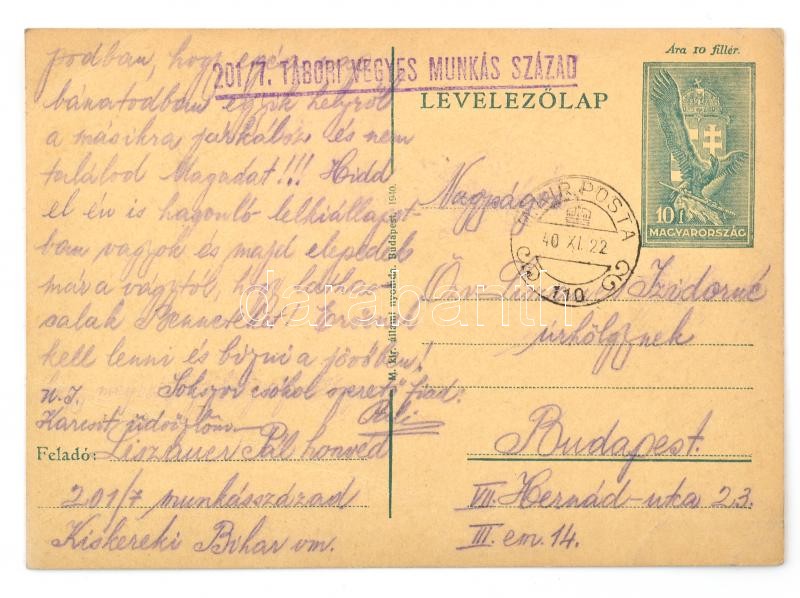 podban, hogy
201/7. TÁBORI VEGYES MUNKÁS SZÁZAD
bánatodban egyik helyről
a másikra járkálsz és nem
találod Magadat!!! Hidd
el én is hasonló lelkiállapot-
ban vagyok és majd elepedek
már a vágytól, hogy láthas-
salak Benneteket!
kell lenni és bízni a jövőben!
Sokszor csókol szerető fiad:
u.i. Pali
Karcsit üdvözlöm
Feladó: Liszauer Pál honvéd
201/7 munkásszázad
Kiskereki Bihar vm.
M. kir. állami nyomda, Budapest, 1940.
Ára 10 fillér.
LEVELEZŐLAP
10 f
MAGYARORSZÁG
M. KIR. POSTA
40 XI. 22
110
Nagysága
Öv. Izidorné
úrhölgynek
Budapest.
VII. Hernád-utca 23.
III. em. 14.
darabanth